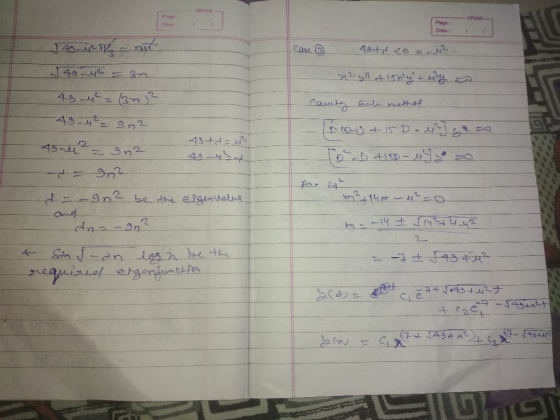 Page:
Date:
√(49-μ²) π/3 = nπ
√(49-μ²) = 3n
49-μ² = (3n)²
49-μ² = 9n²
49-μ² = 9n²
49+λ = μ²
49-μ² = -λ
-λ = 9n²
λ = -9n² be the eigenvalue
and
λn = -9n²
& Sin √-λn log x be the
required eigenfunction
Page:
Date:
Case ③ 49+λ <0 = -μ²
x²y'' + 15xy' - μ²y = 0
Cauchy Euler method
[D(D-1) + 15D - μ²] y = 0
[D² - D + 15D - μ²] y = 0
Au. Eq²
m² + 14m - μ² = 0
m = (-14 ± √(14² + 4μ²)) / 2
= -7 ± √(49+μ²)
y(t) = c₁ e^(-7+√(49+μ²)t
+ c₂ e^(-7-√(49+μ²)t
y(x) = c₁ x^(7+√(49+μ²)) + c₂ x^(7-√(49+μ²))